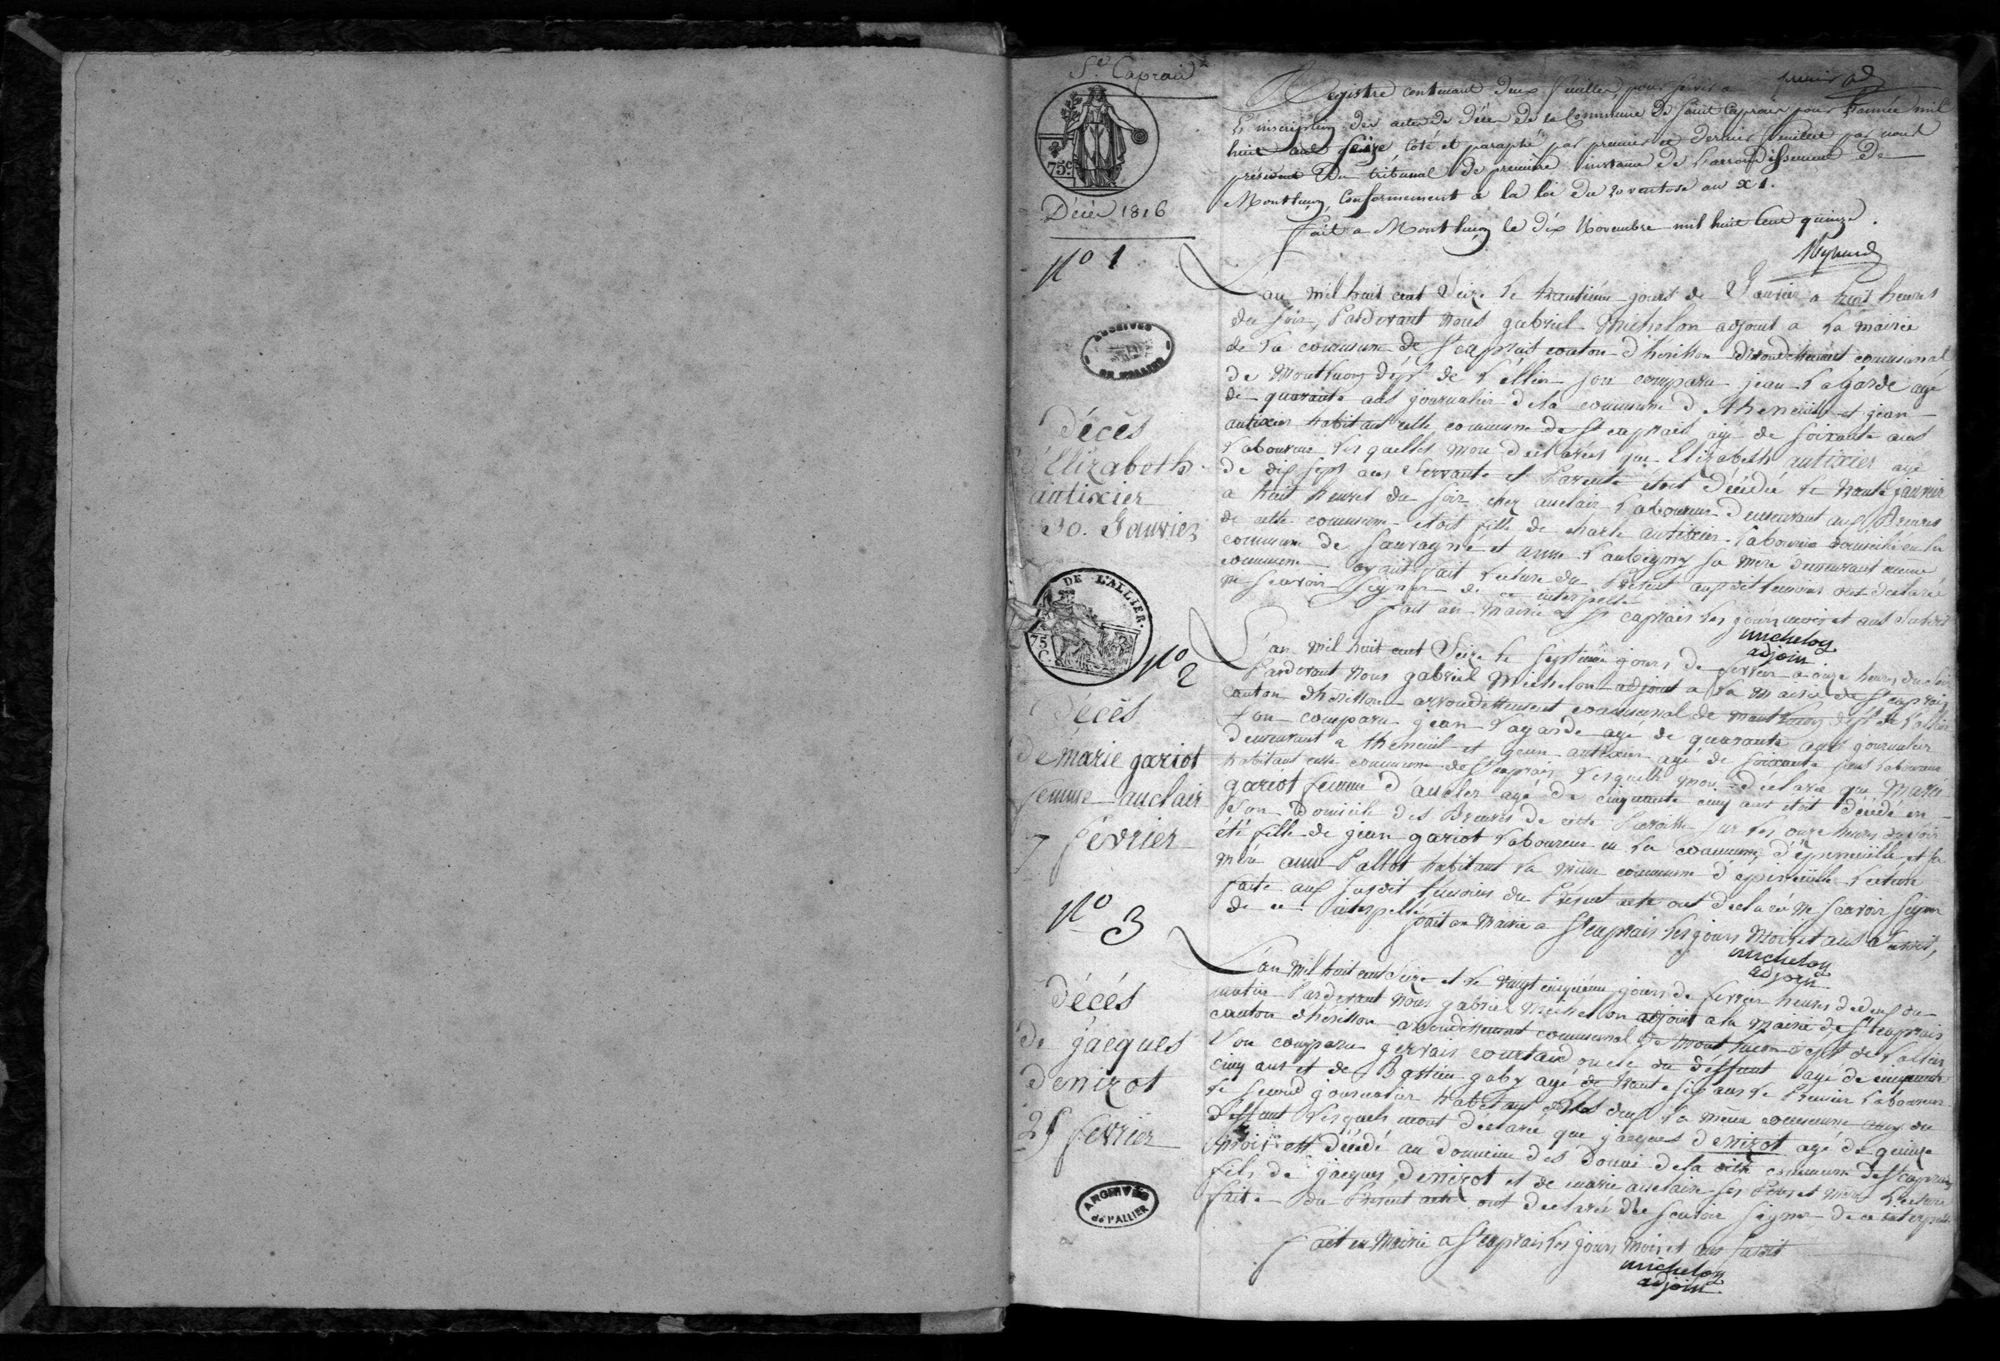 St Caprais
75 c
Décès 1816
premier
Registre contenant deux feuilles pour servir a
L'inscription des actes de décès de la Commune de Saint Caprais pour l'année mil
huit cent seize coté et paraphé par premier et dernier feuillet par nous
président du tribunal de première instance de l'arrondissement de
Montluçon, Conformement a la loi du 20 ventose an XI.
fait a Montluçon le dix Novembre mil huit Cent quinze.
No 1
ARCHIVES
DE L'ALLIER
décès
d'Elizabeth
autixier
30. Janvier
L'an mil huit cent Seize le trantième jours de Janvier a huit heures
du soir, Pardevant Nous gabriel Michelon adjoint a la mairie
de la commune de St caprais canton d'hérisson arrondissement communal
de Montluçon dept de L'allier son comparu jean Lagarde agé
de quarante ans journalier de la commune d'Theneuille et jean
autixier habitant cette commune de St caprais agé de soixante ans
Laboureur Lesquelles mon declarés que Elizabeth autixier agé
de dix sept ans servante et Parente étoit décédé le trante janvier
a huit heures du soir chez auclair Laboureur demeurant aux Breures
de cette commune étoit fille de charle autixier Laboureur domicilié en la
commune de Sauvagné et anne Laubigny sa mere demeurant meme
commune ayant fait lecture du Présent aux dit temoins ont declaré
ne scavoir signer de ce interpellé
fait en Mairie a St caprais les jours mois et ans susdit
michelon
adjoin
DE L'ALLIER.
75 C
No 2
décès
de marie gariot
femme auclair
7 février
L'an mil huit cent Seize le septieme jours de fevrier a onze heures du soir
Pardevant Nous gabriel Michelon adjoint a la Mairie de St caprais
canton d'herisson arrondissement communal de Montluçon dept de L'allier
son comparu jean Lagarde agé de quarante ans journalier
demeurant a theneuil et jean autixier agé de soixante ans Laboureur
habitant cette commune de St caprais Lesquelle mon déclaré que Marie
gariot femme d'aucler agé de cinquante cinq ans étoit décédé en
son domicile des Breures de cette Paroisse sur les onze heures du soir
été fille de jean gariot Laboureur en la commune d'épineuille et sa
mère anne Pallot habitant la même commune d'épineuille Lecture
faite aux susdit temoins du Présent acte ont declaré ne scavoir signer
de ce interpellé
fait en Mairie a St caprais les jours Mois et ans susdit,
michelon
adjoin
No 3
décés
de jacques
denizot
25 février
L'an Mil huit cent Seize et le vingt cinquième jours de fevrier heures de deux du
matin Pardevant Nous gabriel Michelon adjoint a la mairie de St caprais
canton d'herisson arrondissement communal de Montluçon dept de L'allier
son comparu gervais courtaud oncle du deffunt agé de cinquante
cinq ans et de Bastien gaby agé de trante six ans le Premier Laboureur
le second journalier habitant dans la même commune du
deffunt Lesquels mont déclaré que jacques denizot agé de quinze
décédé au domaine des de la dite commune de St caprais
fils de jacques denizot et de marie auclaire ses Pere et Mère Lecture
faite du Présent acte ont declaré ne scavoir signer de ce interpellé
fait en Mairie a St caprais les jours mois et ans susdit
michelon
adjoin
ARCHIVES
de l'ALLIER